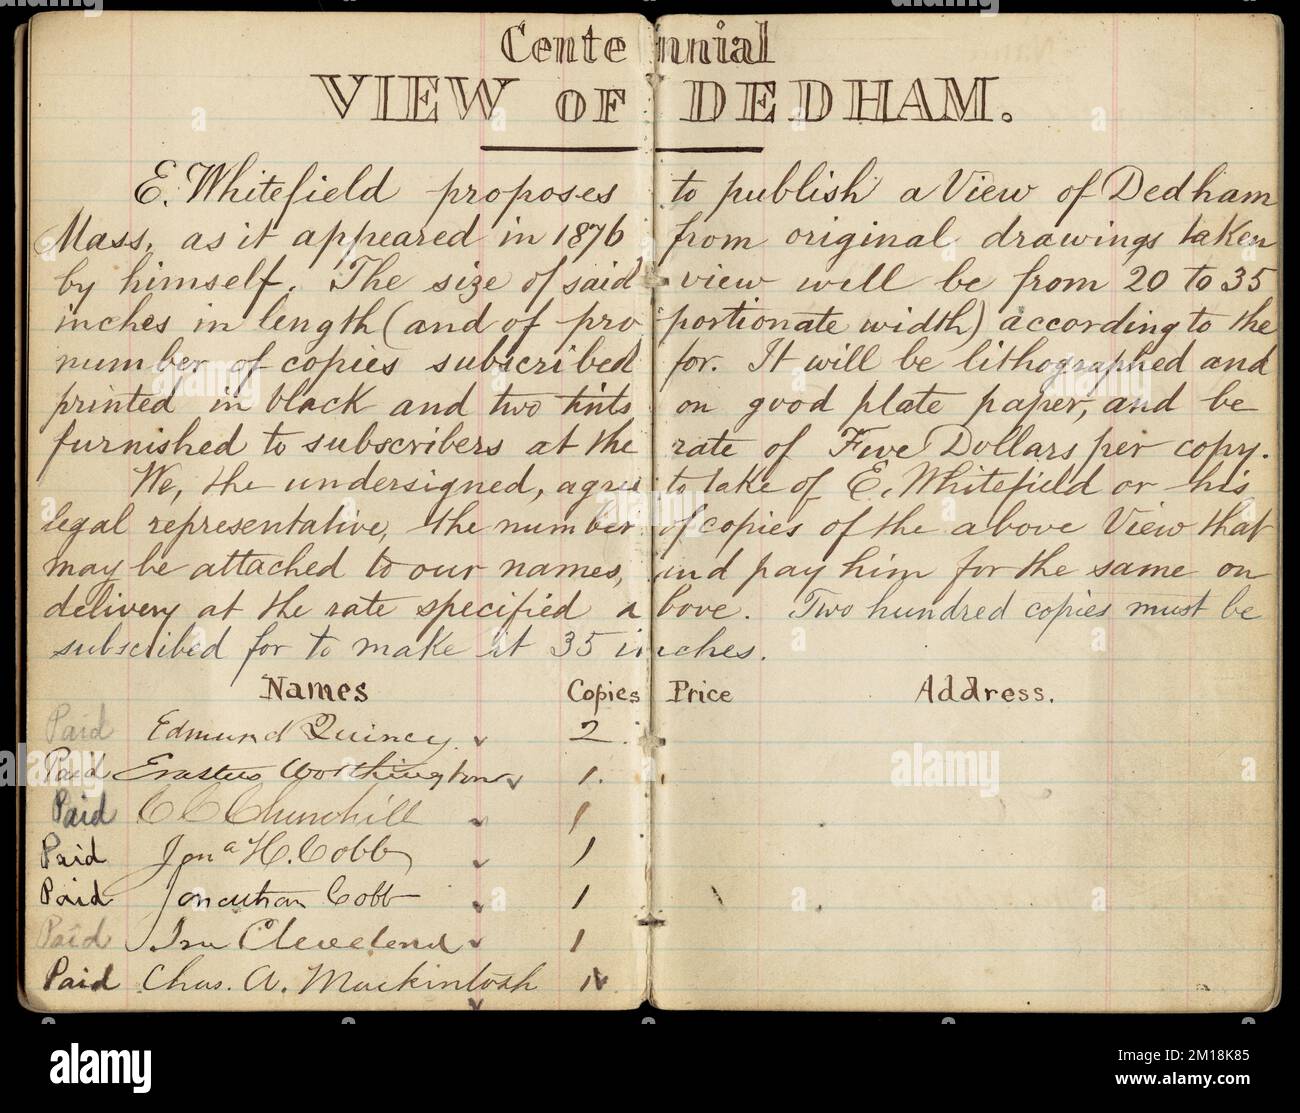 Centennial
VIEW OF DEDHAM.
E. Whitefield proposes to publish a View of Dedham
Mass, as it appeared in 1876 from original drawings taken
by himself. The size of said view will be from 20 to 35
inches in length (and of proportionate width) according to the
number of copies subscribed for. It will be lithographed and
printed in black and two tints on good plate paper, and be
furnished to subscribers at the rate of Five Dollars per copy.
We, the undersigned, agree to take of E. Whitefield or his
legal representative, the number of copies of the above View that
may be attached to our names, and pay him for the same on
delivery at the rate specified above. Two hundred copies must be
subscribed for to make it 35 inches.
Names Copies Price Address.
Paid Edmund Quincy 2
Paid Erastus Worthington 1.
Paid C C Churchill 1
Paid Jona H. Cobb 1
Paid Jonathan Cobb 1
Paid Ira Cleveland 1
Paid Chas. A. Mackintosh 1
alamy
Image ID: 2M18K85
www.alamy.com